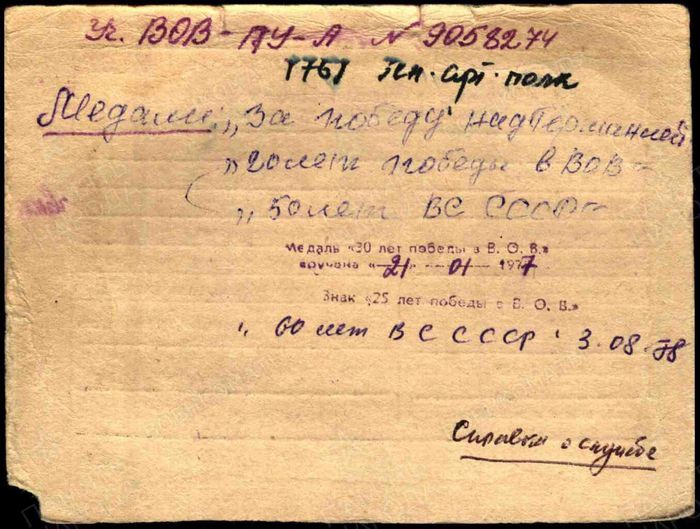 Уч. ВОВ-ПУ-А № 9058274
1761 зен. арт. полк
Медали: „За победу над Германией
„20 лет победы в ВОВ-
„50 лет ВС СССР-
Медаль «30 лет победы в В. О. В.»
вручена «21» 01 1977
Знак «25 лет победы в В. О. В.»
„60 лет ВС СССР" 3.08.78
Справка о службе